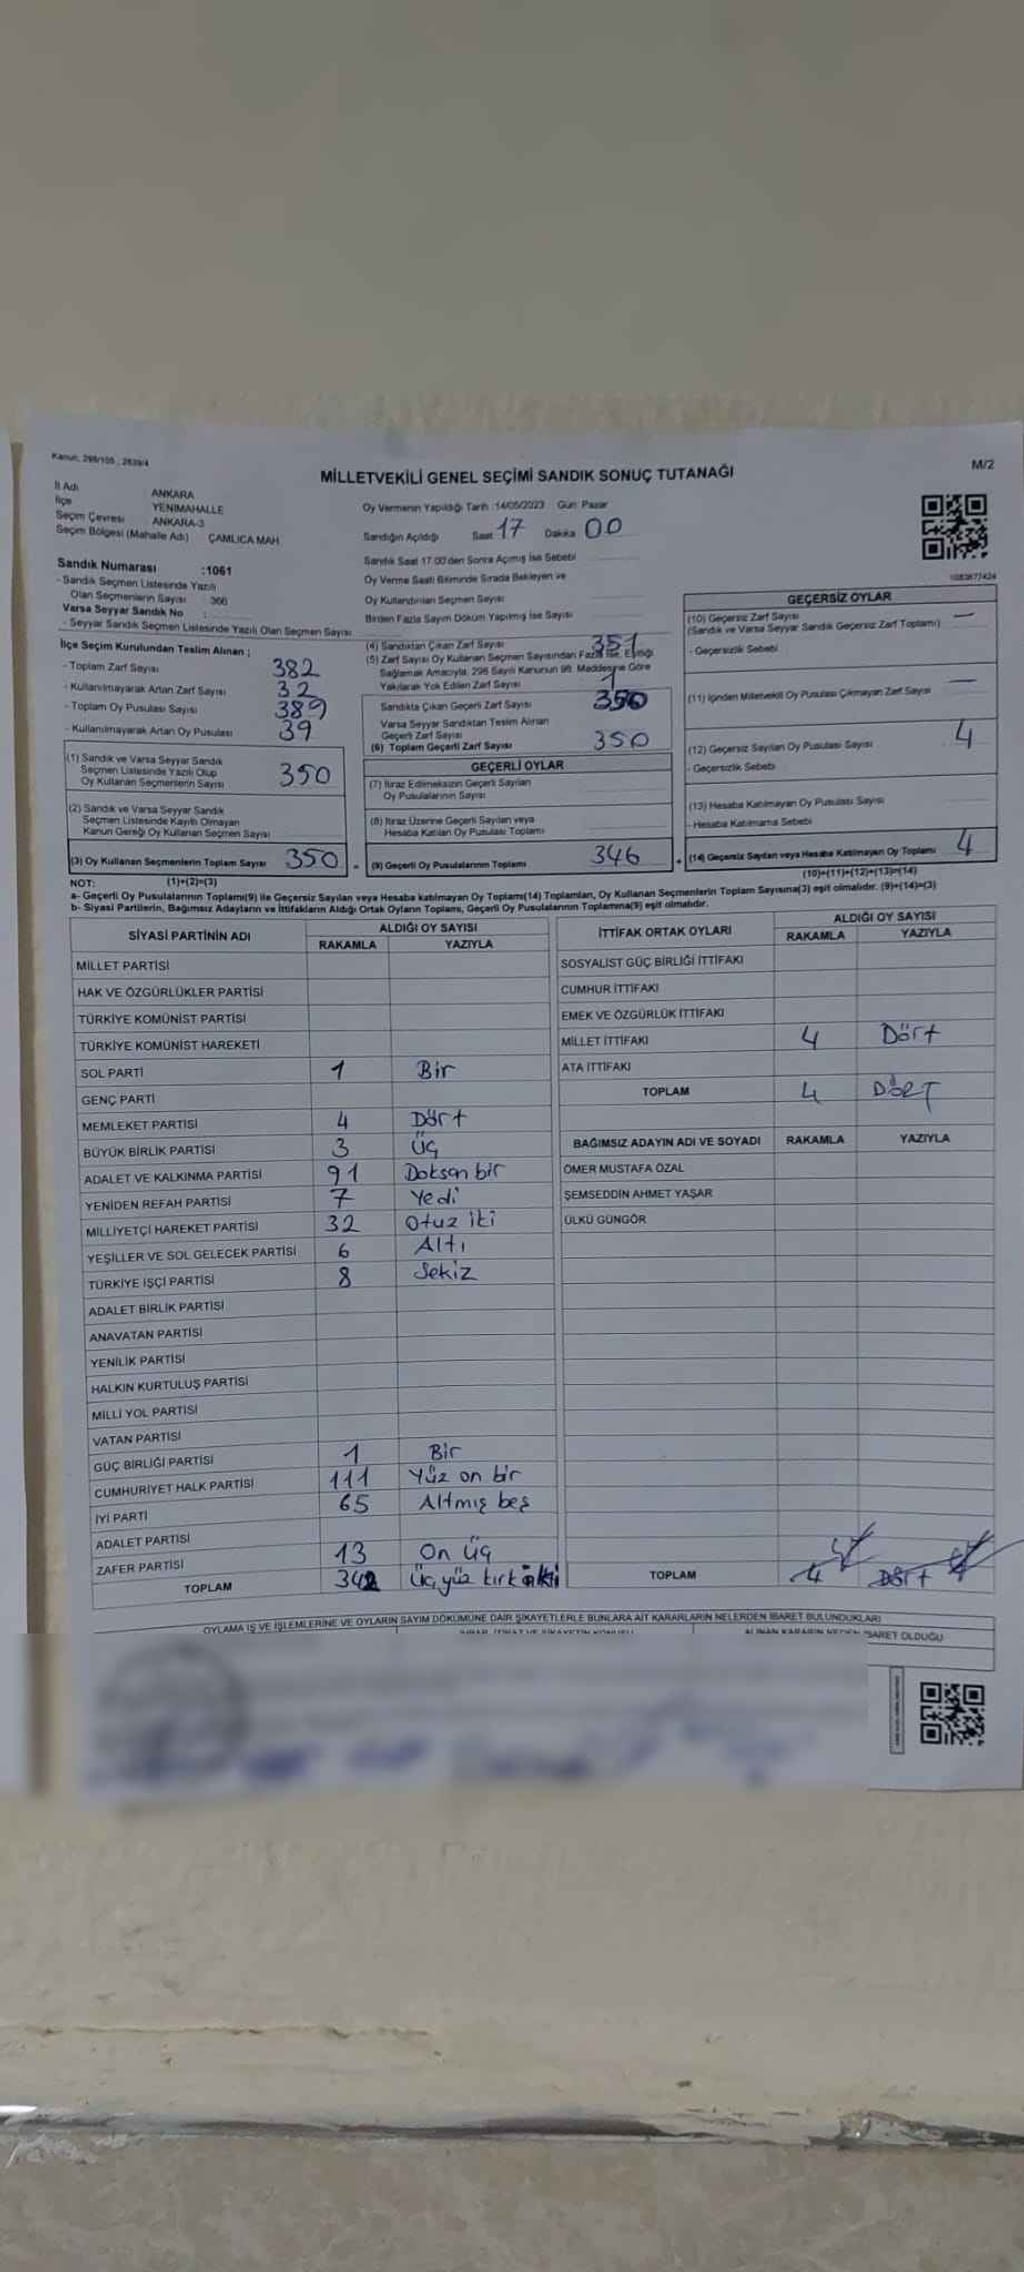 Kanun: 298/105 ; 2839/4
M/2
MİLLETVEKİLİ GENEL SEÇİMİ SANDIK SONUÇ TUTANAĞI
İl Adı ANKARA
İlçe YENİMAHALLE
Seçim Çevresi ANKARA-3
Seçim Bölgesi (Mahalle Adı) ÇAMLICA MAH.
Sandık Numarası :1061
- Sandık Seçmen Listesinde Yazılı
Olan Seçmenlerin Sayısı 366
Varsa Seyyar Sandık No :
- Seyyar Sandık Seçmen Listesinde Yazılı Olan Seçmen Sayısı
İlçe Seçim Kurulundan Teslim Alınan ;
- Toplam Zarf Sayısı 382
- Kullanılmayarak Artan Zarf Sayısı 32
- Toplam Oy Pusulası Sayısı 389
- Kullanılmayarak Artan Oy Pusulası 39
(1) Sandık ve Varsa Seyyar Sandık
Seçmen Listesinde Yazılı Olup
Oy Kullanan Seçmenlerin Sayısı 350
(2) Sandık ve Varsa Seyyar Sandık
Seçmen Listesinde Kayıtlı Olmayan
Kanun Gereği Oy Kullanan Seçmen Sayısı
(3) Oy Kullanan Seçmenlerin Toplam Sayısı 350
(1)+(2)=(3)
Oy Vermenin Yapıldığı Tarih :14/05/2023 Gün: Pazar
Sandığın Açıldığı Saat 17 Dakika 00
Sandık Saat 17.00'den Sonra Açılmış İse Sebebi
Oy Verme Saati Bitiminde Sırada Bekleyen ve
Oy Kullandırılan Seçmen Sayısı
Birden Fazla Sayım Döküm Yapılmış İse Sayısı
(4) Sandıktan Çıkan Zarf Sayısı 351
(5) Zarf Sayısı Oy Kullanan Seçmen Sayısından Fazla İse, Eşitliği
Sağlamak Amacıyla, 298 Sayılı Kanunun 98. Maddesine Göre
Yakılarak Yok Edilen Zarf Sayısı 1
Sandıkta Çıkan Geçerli Zarf Sayısı 350
Varsa Seyyar Sandıktan Teslim Alınan
Geçerli Zarf Sayısı
(6) Toplam Geçerli Zarf Sayısı 350
GEÇERLİ OYLAR
(7) İtiraz Edilmeksizin Geçerli Sayılan
Oy Pusulalarının Sayısı
(8) İtiraz Üzerine Geçerli Sayılan veya
Hesaba Katılan Oy Pusulası Toplamı
(9) Geçerli Oy Pusulalarının Toplamı 346
1083877424
GEÇERSİZ OYLAR
(10) Geçersiz Zarf Sayısı —
(Sandık ve Varsa Seyyar Sandık Geçersiz Zarf Toplamı)
- Geçersizlik Sebebi
(11) İçinden Milletvekili Oy Pusulası Çıkmayan Zarf Sayısı —
(12) Geçersiz Sayılan Oy Pusulası Sayısı 4
- Geçersizlik Sebebi
(13) Hesaba Katılmayan Oy Pusulası Sayısı
- Hesaba Katılmama Sebebi
(14) Geçersiz Sayılan veya Hesaba Katılmayan Oy Toplamı 4
(10)+(11)+(12)+(13)=(14)
NOT:
a- Geçerli Oy Pusulalarının Toplamı(9) ile Geçersiz Sayılan veya Hesaba katılmayan Oy Toplamı(14) Toplamları, Oy Kullanan Seçmenlerin Toplam Sayısına(3) eşit olmalıdır. (9)+(14)=(3)
b- Siyasi Partilerin, Bağımsız Adayların ve İttifakların Aldığı Ortak Oyların Toplamı, Geçerli Oy Pusulalarının Toplamına(9) eşit olmalıdır.
SİYASİ PARTİNİN ADI ALDIĞI OY SAYISI
RAKAMLA YAZIYLA
MİLLET PARTİSİ
HAK VE ÖZGÜRLÜKLER PARTİSİ
TÜRKİYE KOMÜNİST PARTİSİ
TÜRKİYE KOMÜNİST HAREKETİ
SOL PARTİ 1 Bir
GENÇ PARTİ
MEMLEKET PARTİSİ 4 Dört
BÜYÜK BİRLİK PARTİSİ 3 Üç
ADALET VE KALKINMA PARTİSİ 91 Doksan bir
YENİDEN REFAH PARTİSİ 7 Yedi
MİLLİYETÇİ HAREKET PARTİSİ 32 Otuz iki
YEŞİLLER VE SOL GELECEK PARTİSİ 6 Altı
TÜRKİYE İŞÇİ PARTİSİ 8 Sekiz
ADALET BİRLİK PARTİSİ
ANAVATAN PARTİSİ
YENİLİK PARTİSİ
HALKIN KURTULUŞ PARTİSİ
MİLLİ YOL PARTİSİ
VATAN PARTİSİ
GÜÇ BİRLİĞİ PARTİSİ 1 Bir
CUMHURİYET HALK PARTİSİ 111 Yüz on bir
İYİ PARTİ 65 Altmış beş
ADALET PARTİSİ
ZAFER PARTİSİ 13 On üç
TOPLAM 342 Üç yüz kırk iki
İTTİFAK ORTAK OYLARI ALDIĞI OY SAYISI
RAKAMLA YAZIYLA
SOSYALİST GÜÇ BİRLİĞİ İTTİFAKI
CUMHUR İTTİFAKI
EMEK VE ÖZGÜRLÜK İTTİFAKI
MİLLET İTTİFAKI 4 Dört
ATA İTTİFAKI
TOPLAM 4 DÖRT
BAĞIMSIZ ADAYIN ADI VE SOYADI RAKAMLA YAZIYLA
ÖMER MUSTAFA ÖZAL
ŞEMSEDDİN AHMET YAŞAR
ÜLKÜ GÜNGÖR
TOPLAM 4 Dört
OYLAMA İŞ VE İŞLEMLERİNE VE OYLARIN SAYIM DÖKÜMÜNE DAİR ŞİKAYETLERLE BUNLARA AİT KARARLARIN NELERDEN İBARET BULUNDUKLARI
ALINAN KARARIN NEDEN İBARET OLDUĞU